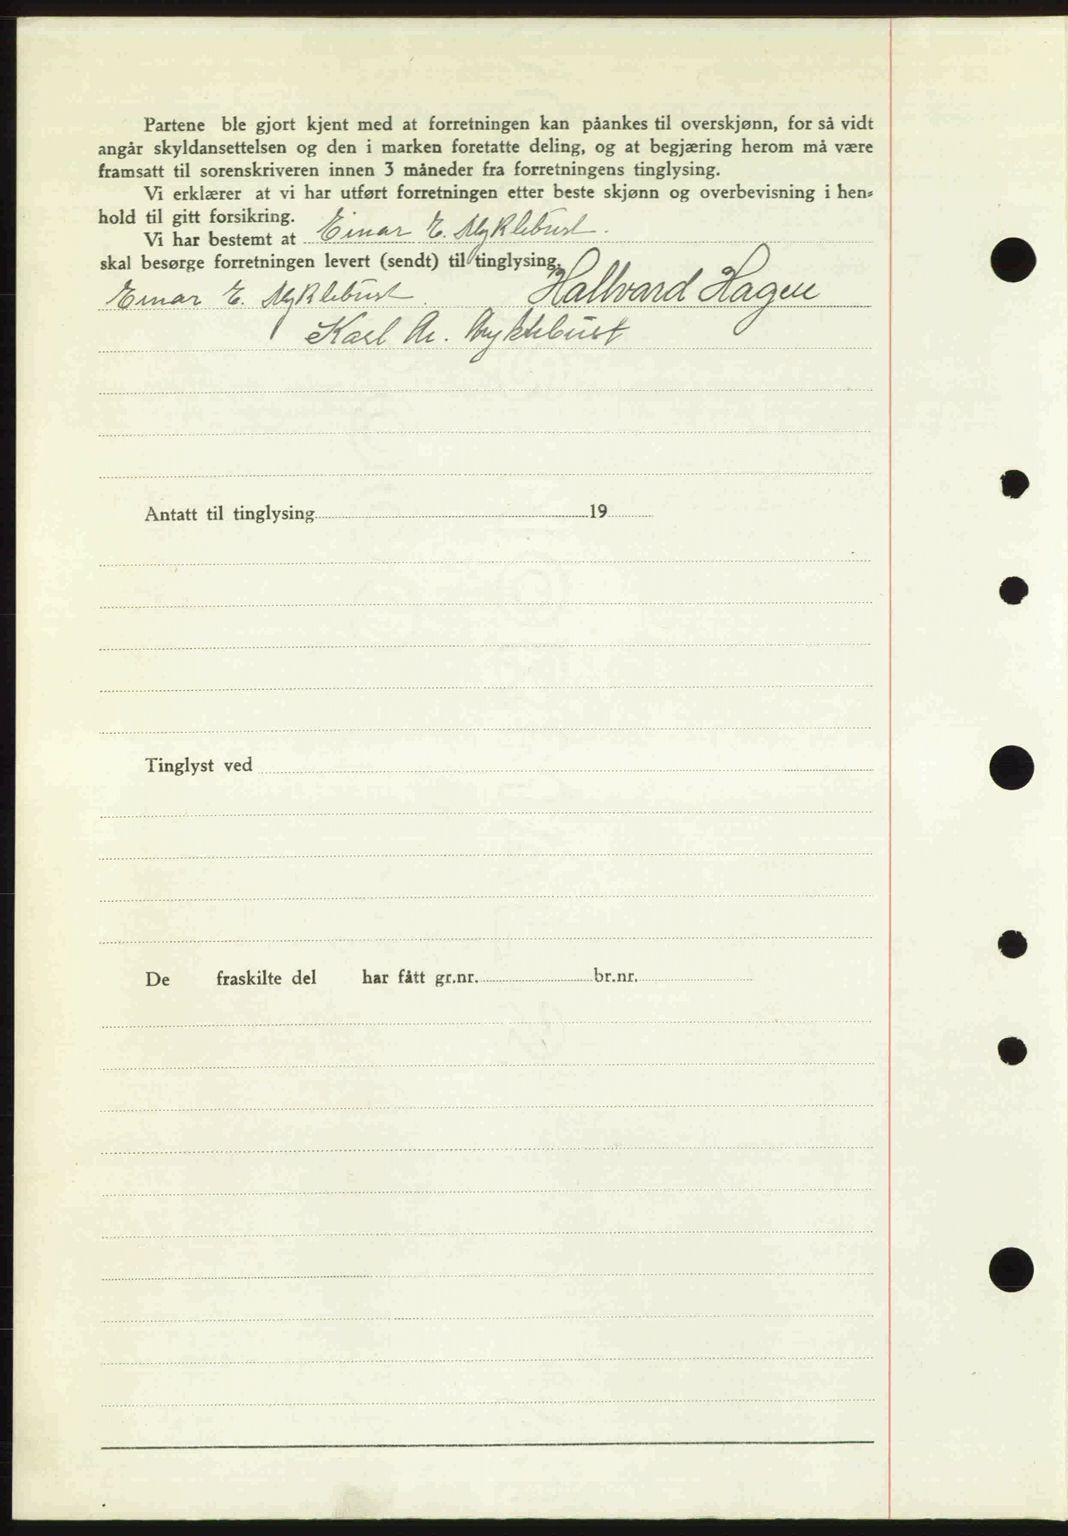 Partene ble gjort kjent med at forretningen kan påankes til overskjønn, for så vidt
angår skyldansettelsen og den i marken foretatte deling, og at begjæring herom må være
framsatt til sorenskriveren innen 3 måneder fra forretningens tinglysing.
Vi erklærer at vi har utført forretningen etter beste skjønn og overbevisning i hen-
hold til gitt forsikring.
Vi har bestemt at Einar E. Myklebust.
skal besørge forretningen levert (sendt) til tinglysing.
Einar E. Myklebust. Hallvard Hagen
Karl Myklebust
Antatt til tinglysing 19
Tinglyst ved
De fraskilte del har fått gr.nr. br.nr.